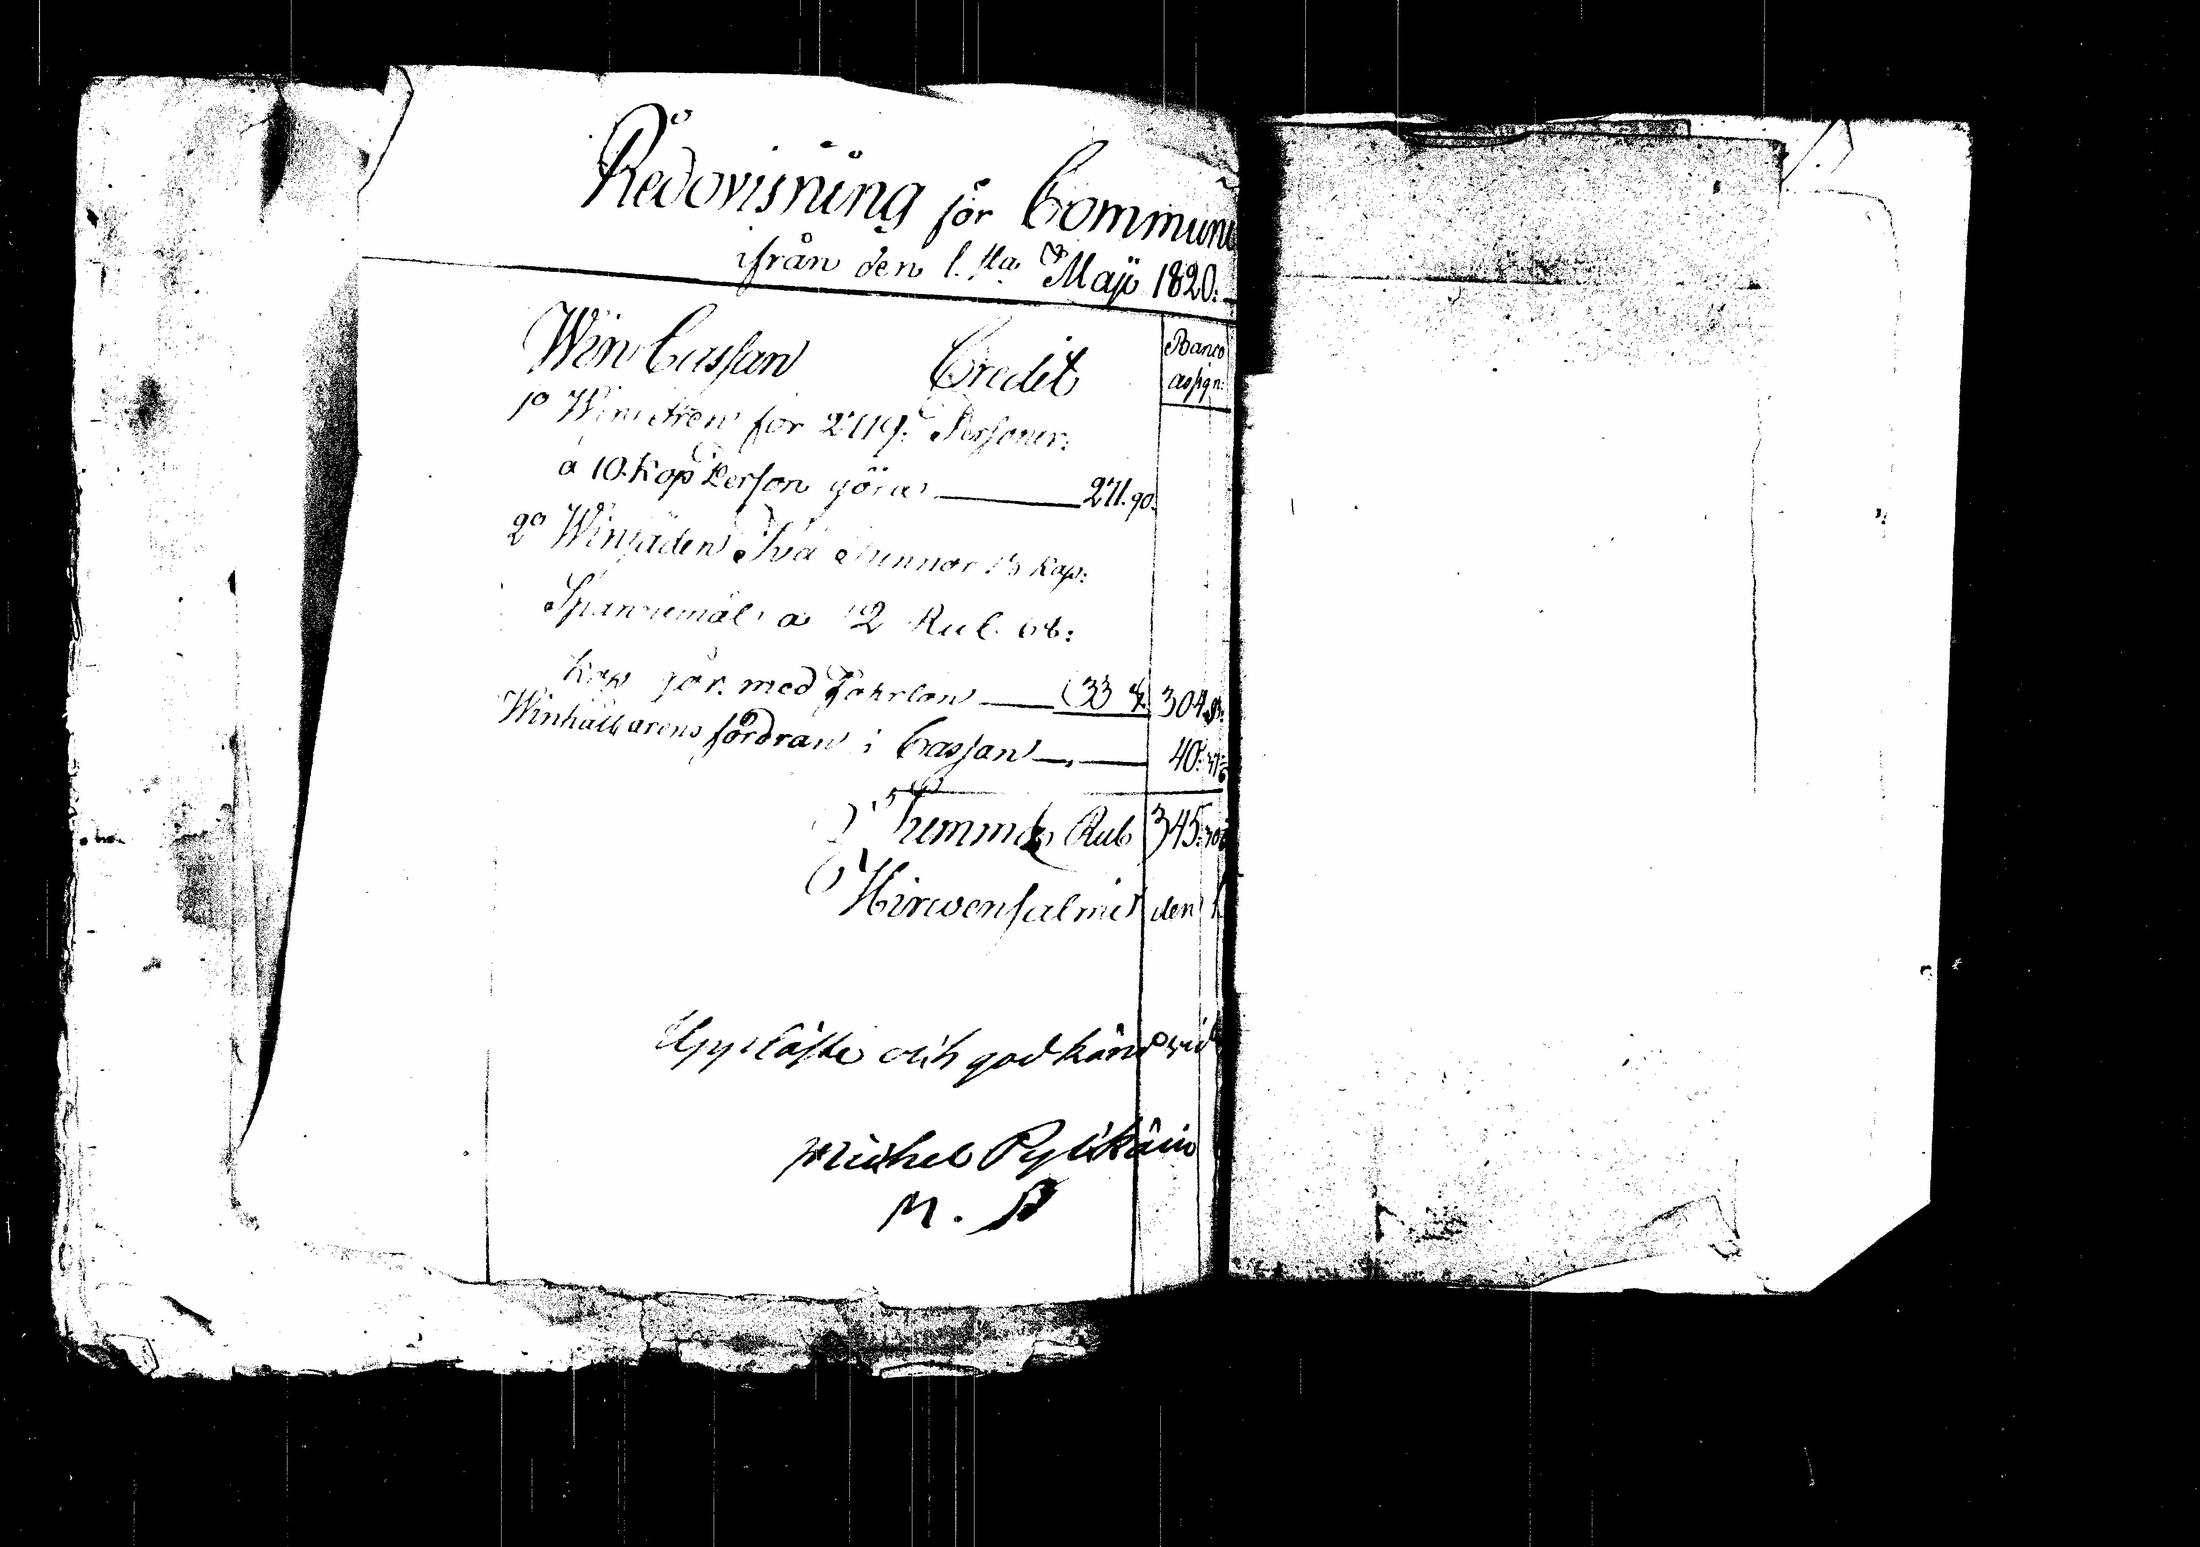 Redovisning för Commun
ifrån den 1.sta Maji 1820.
Win Cassan Credit
Banco
assign:
1o Winören för 2719. Personer.
a 10. Kop Person göra 271.90.
2o Winsäden Två Tunnor 13 kap:
Spannemål a 12 Rub. 68:
kop gör. med Fohrlön (33 304.
Winhållarens fordran i Cassan 40:
Summa Rub 345.
Hirwensalmi den
Uppläste och godkänd vid
Michel Pylkäin
M. P